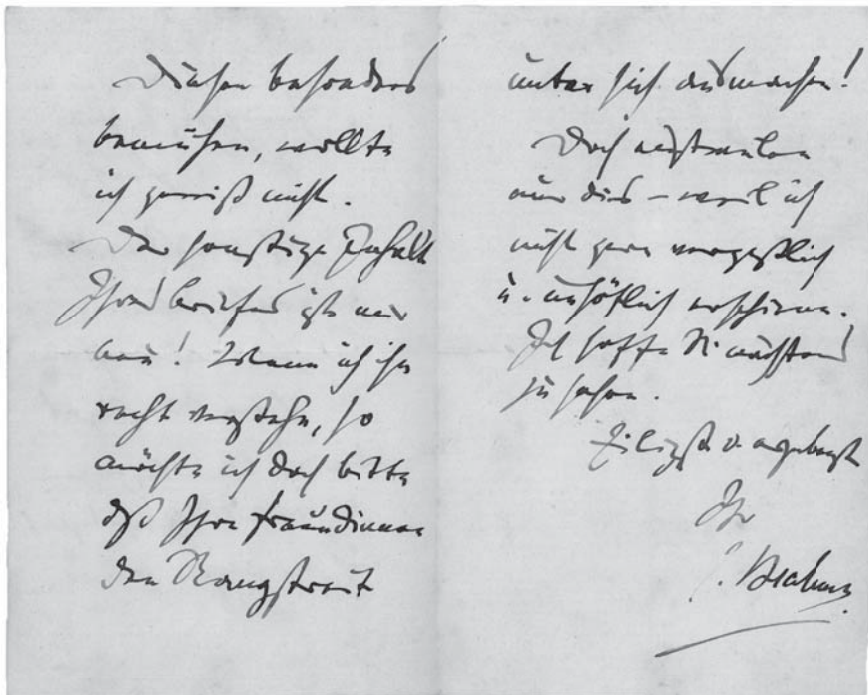 Diesen besonders
bemühen, wollte
ich gewiß nicht.
Der sonstige Inhalt
Ihres Briefes ist mir
neu! Wenn ich ihn
recht verstehe, so
möchte ich doch bitten
daß Ihre Freundinnen
den Rangstreit
unter sich ausmachen!
Doch
nur dies – weil ich
nicht gern vergeßlich
u. unhöflich erscheine.
Ich hoffe Sie nächstens
zu sehen.
Eiligst u. ergebenst
Ihr
J. Brahms